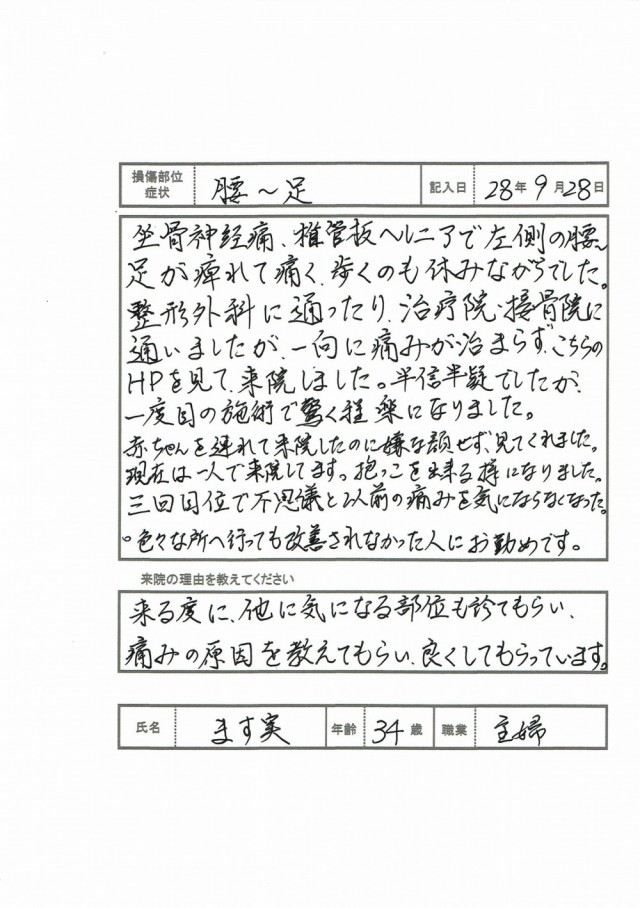 損傷部位 症状 腰〜足 記入日 28年9月28日
坐骨神経痛、椎管板ヘルニアで左側の腰〜
足が痺れて痛く、歩くのも休みながらでした。
整形外科に通ったり、治疗院・接骨院に
通いましたが、一向に痛みが治まらず、こちらの
HPを見て、来院しました。半信半疑でしたが、
一度目の施術で驚く程楽になりました。
赤ちゃんを連れて来院したのに嫌な顔せず、見てくれました。
現在は一人で来院してます。抱っこを出来る様になりました。
三回目位で不思議と以前の痛みを気にならなくなった。
。色々な所へ行っても改善されなかった人にお勤めです。
来院の理由を教えてください
来る度に、他に気になる部位も診てもらい、
痛みの原因を教えてもらい、良くしてもらっています。
氏名 ます実 年齢 34歳 職業 主婦